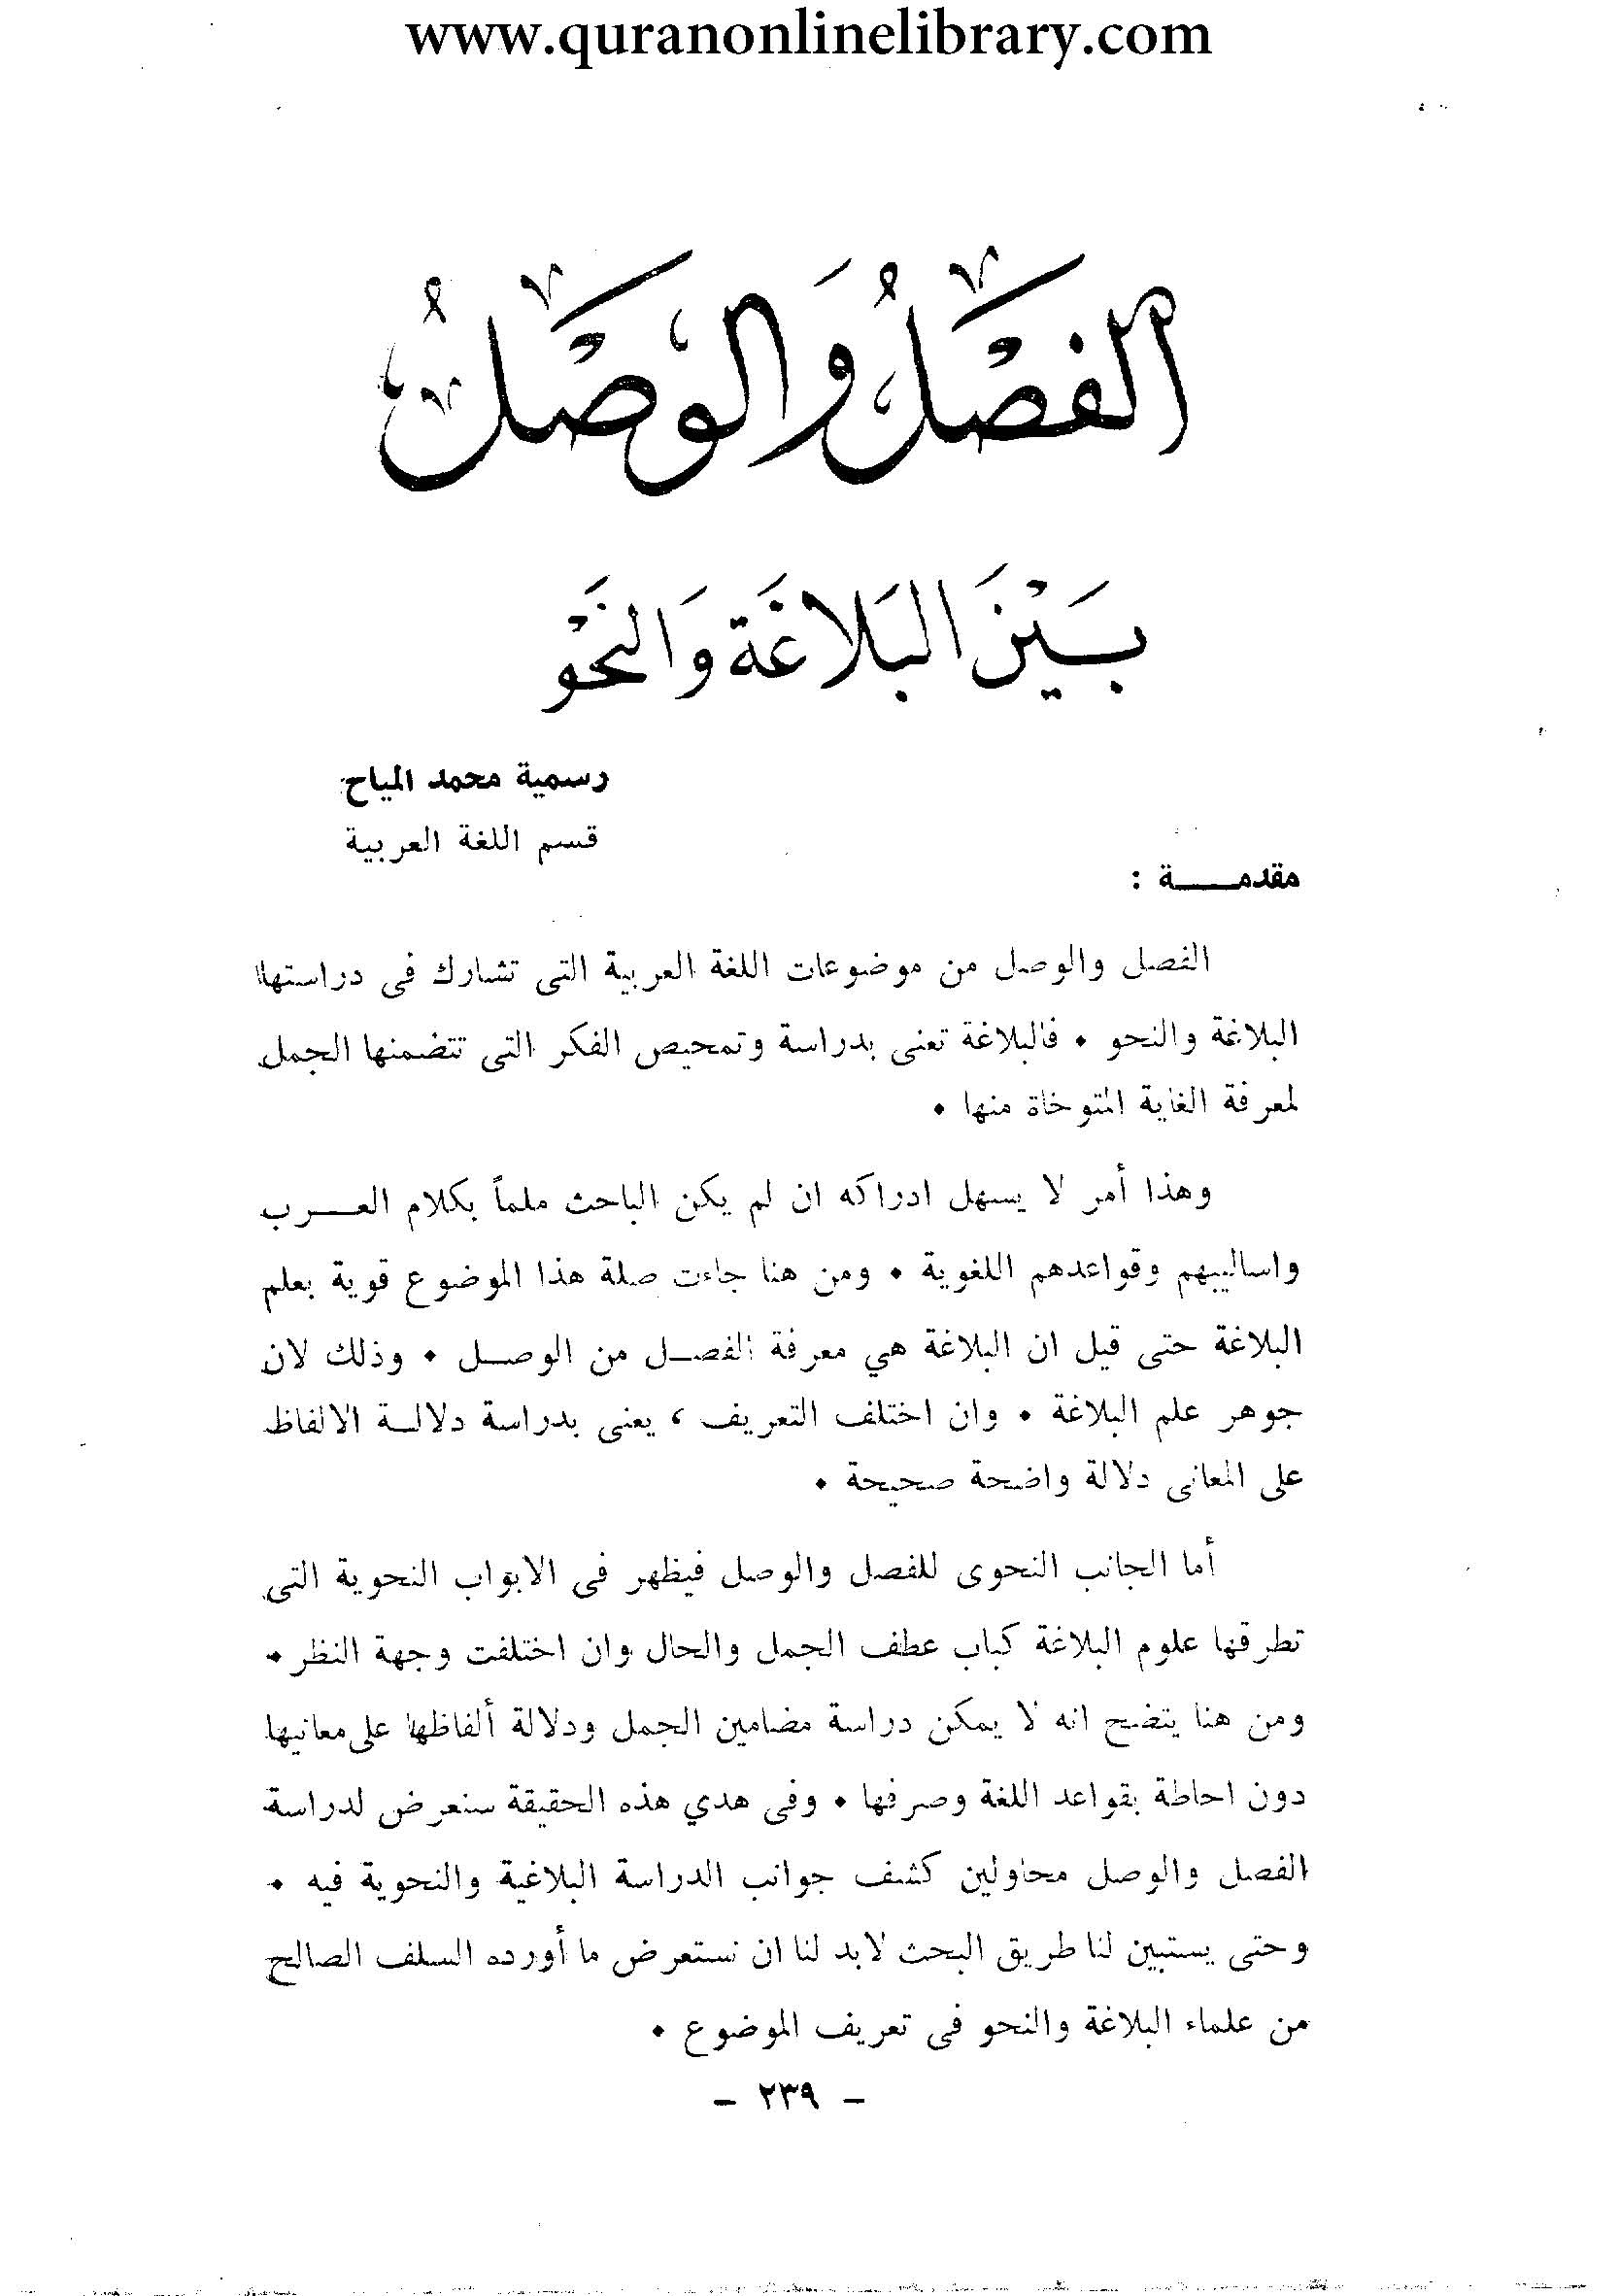 www.quranonlinelibrary.com
الفصلُ وَالوصلُ
بَيْنَ البَلاغَة وَالنَحْو
رسمية محمد المياح
قسم اللغة العربية
مقدمـــــة :
الفصل والوصل من موضوعات اللغة العربية التى تشارك فى دراستها
البلاغة والنحو • فالبلاغة تعنى بدراسة وتمحيص الفكر التى تتضمنها الجمل
لمعرفة الغاية المتوخاة منها •
وهذا أمر لا يسهل ادراكه ان لم يكن الباحث ملماً بكلام العـــرب
واساليبهم وقواعدهم اللغوية • ومن هنا جاءت صلة هذا الموضوع قوية بعلم
البلاغة حتى قيل ان البلاغة هي معرفة الفصـل من الوصـل • وذلك لان
جوهر علم البلاغة • وان اختلف التعريف ، يعنى بدراسة دلالـة الالفاظ
على المعانى دلالة واضحة صحيحة •
أما الجانب النحوى للفصل والوصل فيظهر فى الابواب النحوية التى
تطرقها علوم البلاغة كباب عطف الجمل والحال وان اختلفت وجهة النظر •
ومن هنا يتضح انه لا يمكن دراسة مضامين الجمل ودلالة ألفاظها على معانيها
دون احاطة بقواعد اللغة وصرفها • وفى هدي هذه الحقيقة سنعرض لدراسة
الفصل والوصل محاولين كشف جوانب الدراسة البلاغية والنحوية فيه •
وحتى يستبين لنا طريق البحث لابد لنا ان نستعرض ما أورده السلف الصالح
من علماء البلاغة والنحو فى تعريف الموضوع •
– ٢٣٩ –